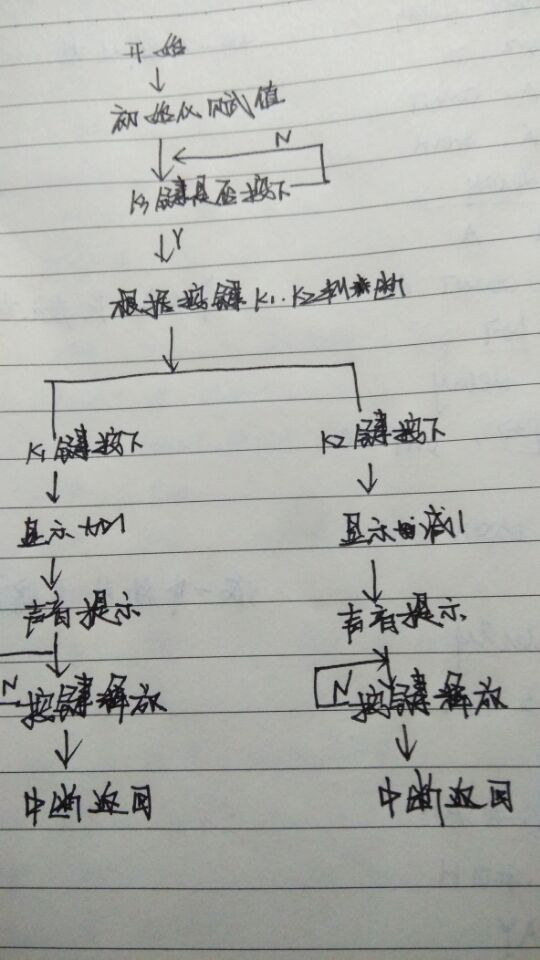 开始
初始化赋值
N
K3键是否按下
Y
根据按键K1.K2判断
K1键按下 K2键按下
显示加1 显示减1
声音提示 声音提示
N N
按键释放 按键释放
中断返回 中断返回